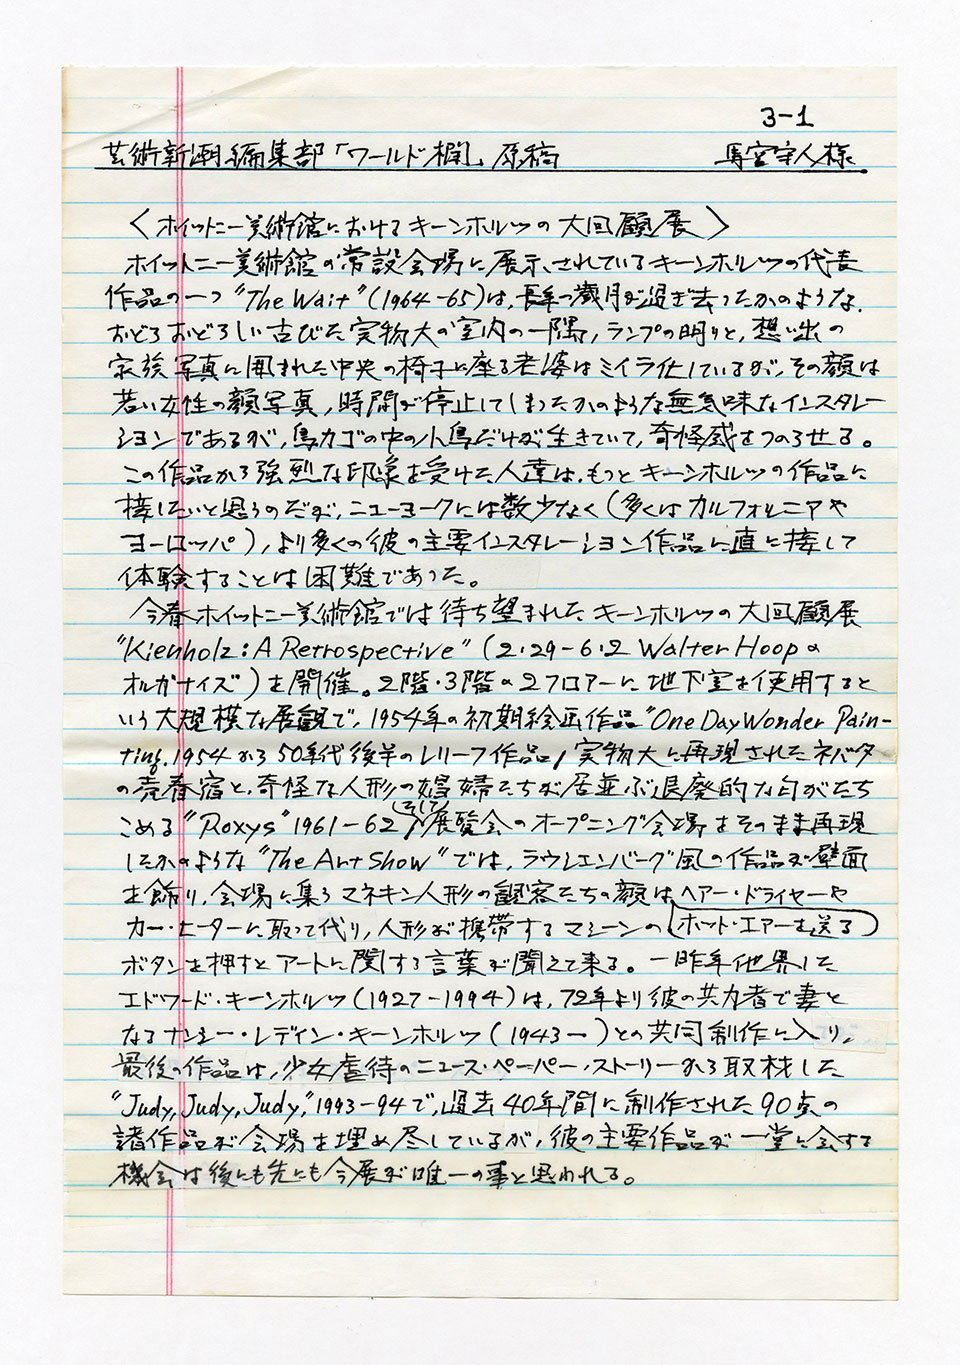 3-1
芸術新潮編集部「ワールド欄」原稿 馬宮守人様
〈ホイットニー美術館におけるキーンホルツの大回顧展〉
ホイットニー美術館の常設会場に展示されているキーンホルツの代表
作品の一つ"The Wait"(1964-65)は、長年の歳月が過ぎ去ったかのような、
おどろおどろしい古びた実物大の室内の一隅,ランプの明りと,想い出の
家族写真に囲まれた中央の椅子に座る老婆はミイラ化しているが、その顔は
若い女性の顔写真,時間が停止してしまったかのような無気味なインスタレー
ションであるが,鳥カゴの中の小鳥だけが生きていて,奇怪感をつのらせる。
この作品から強烈な印象を受けた人達は、もっとキーンホルツの作品に
接したいと思うのだが,ニューヨークには数少なく(多くはカルフォルニアや
ヨーロッパ),より多くの彼の主要インスタレーション作品に直に接して
体験することは困難であった。
今春ホイットニー美術館では待ち望まれたキーンホルツの大回顧展
"Kienholz:A Retrospective"(2・29-6・2 Walter Hoopの
オルガナイズ)を開催。2階・3階の2フロアーに地下室を使用すると
いう大規模な展観で,1954年の初期絵画作品"One Day Wonder Pain-
ting.1954から50年代後半のレリーフ作品,実物大に再現されたネバダ
の売春宿と,奇怪な人形の娼婦たちが居並ぶ退廃的な匂がたち
こめる"Roxys"1961-62,(そして)展覧会のオープニング会場をそのまま再現
したかのような"The Art Show"では,ラウシェンバーグ風の作品が壁面
を飾り,会場に集うマネキン人形の観客たちの顔はヘアー・ドライヤーや
カー・ヒーターに取って代り,人形が携帯するマシーンのホット・エアーを送る
ボタンを押すとアートに関する言葉が聞えて来る。一昨年他界した
エドワード・キーンホルツ(1927-1994)は,72年より彼の共力者で妻と
なるナンシー・レディン・キーンホルツ(1943-)との共同制作に入り,
最後の作品は,少女虐待のニュース・ペーパー・ストーリーから取材した
"Judy,Judy,Judy,"1993-94で,過去40年間に制作された90点の
諸作品が会場を埋め尽しているが,彼の主要作品が一堂に会する
機会は後にも先にも今展が唯一の事と思われる。